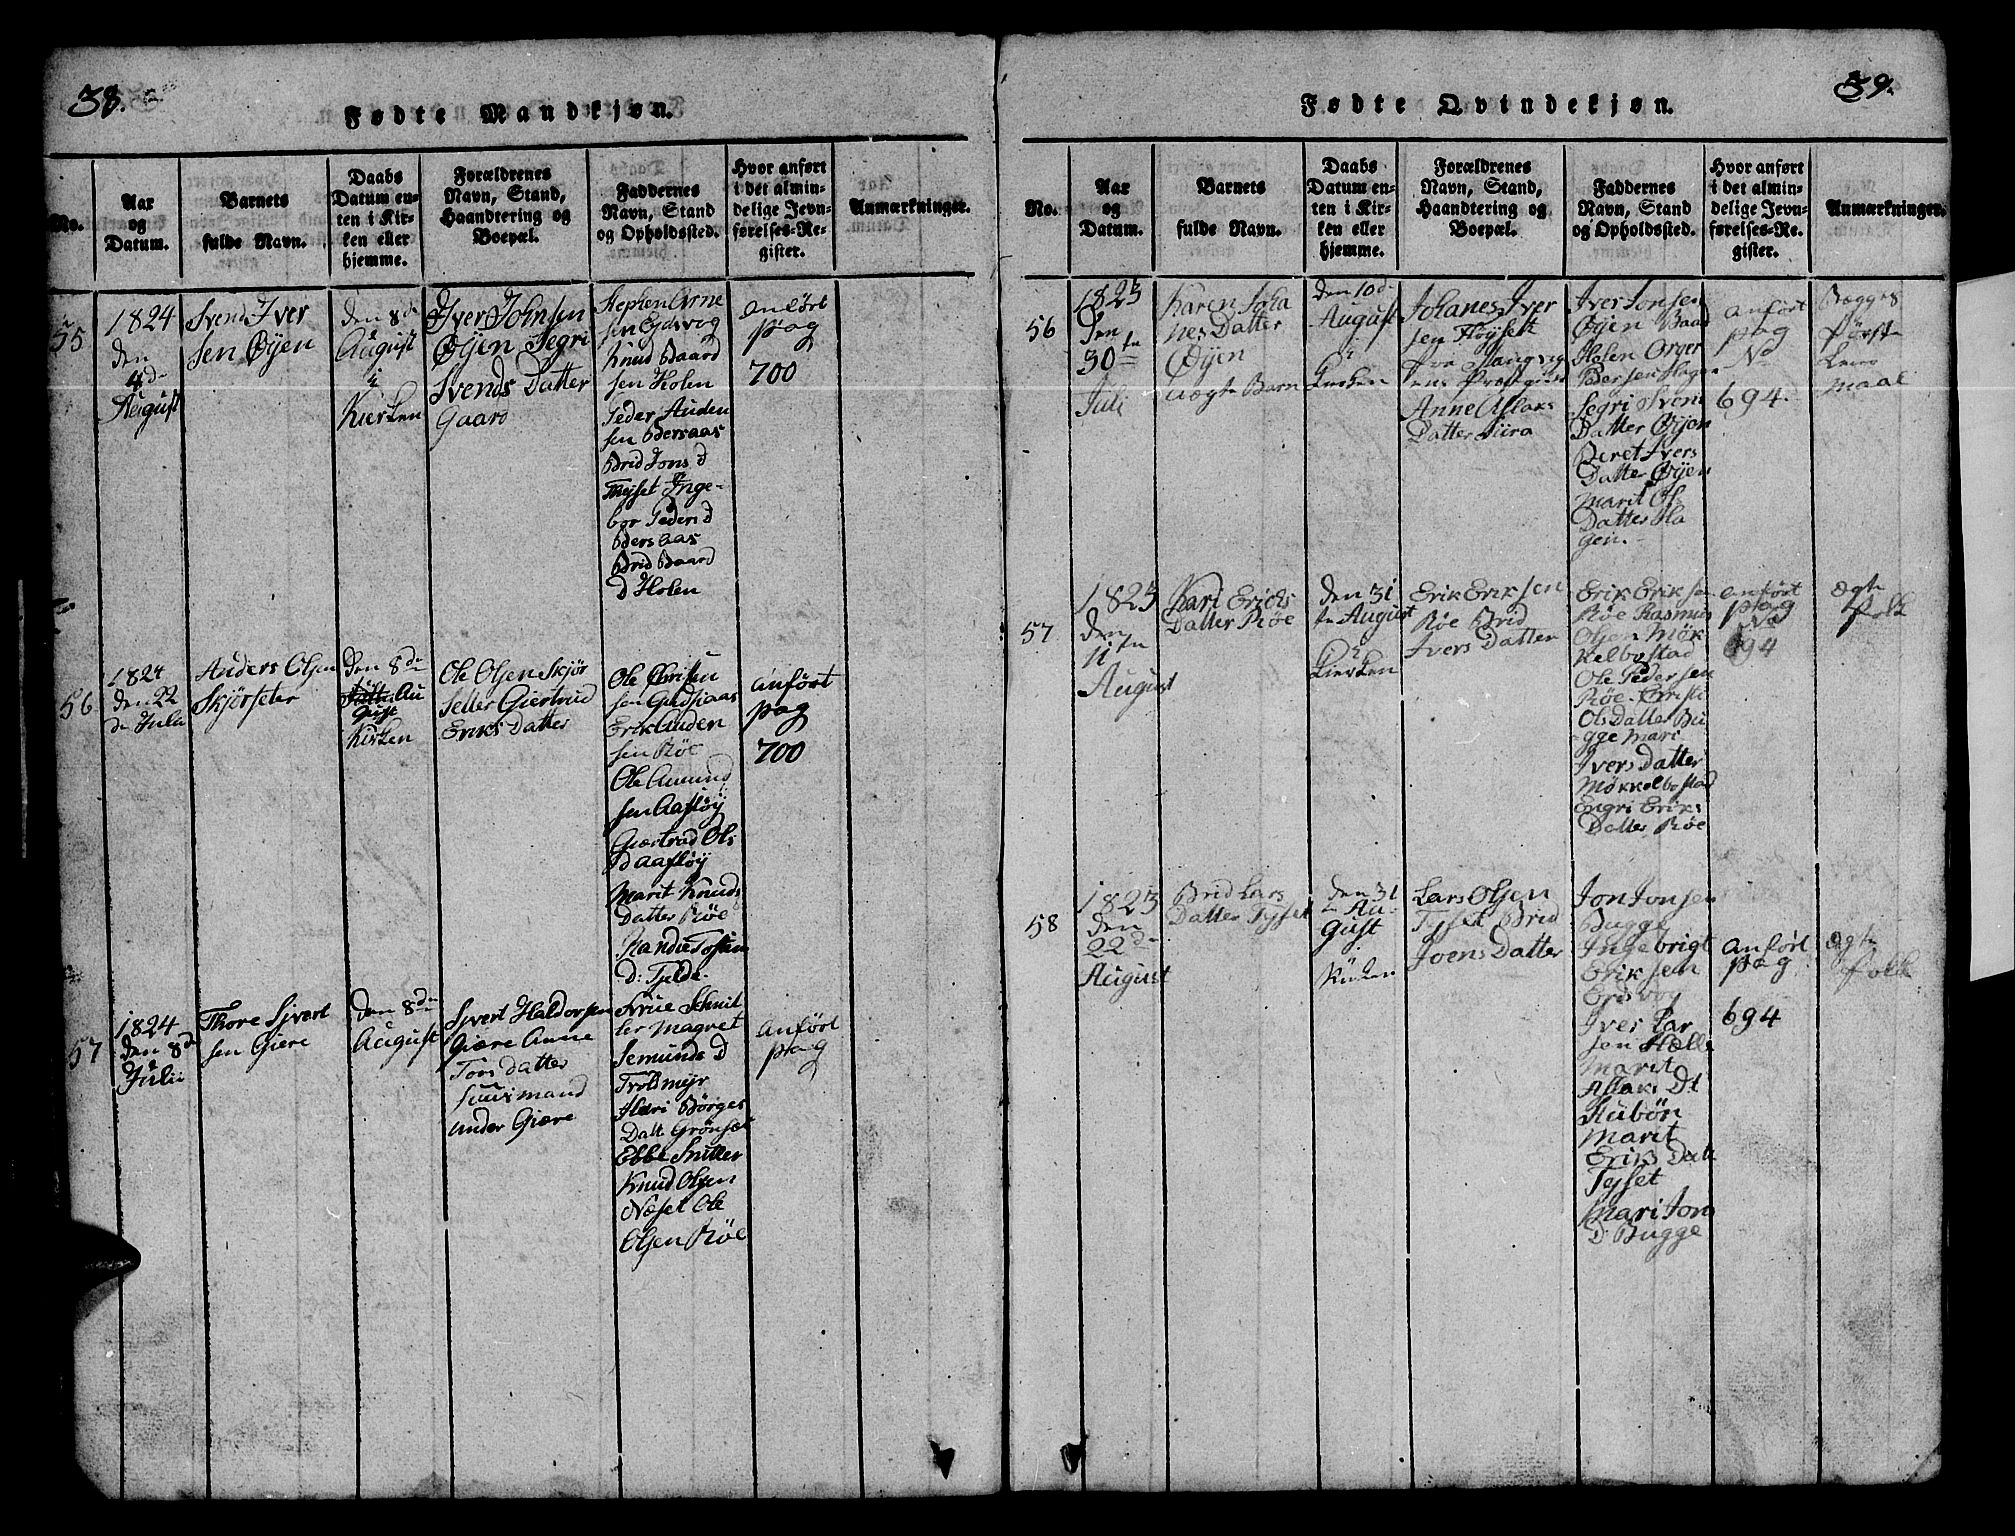 38.
Fødte Mandkjøn.
No.
Aar
og
Datum.
Barnets
fulde Navn.
Daabs
Datum en-
ten i Kir-
ken eller
hjemme.
Forældrenes
Navn, Stand,
Haandtering og
Boepæl.
Faddernes
Navn, Stand
og Opholdssted.
Hvor anført
i det almin-
delige Jevn-
førelses-Re-
gister.
Anmærkninger.
55
1824
den
4d
August
Svend Iver
sen Øyen
den 8d
August
i
Kirken
Iver Johnsen
Øyen Segri
Svends Datter
Gaard
Stephen Arne
sen Eydsvog
Knud Baard
sen Holen
Peder Auden
sen
Brid Jons d
Inge-
bor Peders d
Brid Baard
d Holen
anført
pag
700
56
1824
den 22
d Julii
Anders Olsen
Skjørseter
den 8d
Au
gust
Kirken
Ole Olsen Skjør
setter Giertrud
Eriks Datter
Ole
sen
Erik Auden
sen Röe
Ole Amund
sen Aafløy
Giertrud Ols
D Aafløy
Marit Knuds
Datter Röe
Randie
D: Tjelde
anført
pag
700
57
1824
den 8d
Julii
Thore Sjvert
sen Giere
den 8d
August
Sjvert Haldorsen
Giære Anne
Tors Datter
Huusmand
under Giære
Frue Schnit
ler Magret
Semunds D
Troldmyr
Mari Börges
Datt Grönset
Ebbe Snitler
Knud Olsen
Næset Ole
Olsen Röe
anført
pag
39.
Fødte Qvindekjøn.
No.
Aar
og
Datum.
Barnets
fulde Navn.
Daabs
Datum en-
ten i Kir-
ken eller
hjemme.
Forældrenes
Navn, Stand,
Haandtering og
Boepæl.
Faddernes
Navn, Stand
og Opholdssted.
Hvor anført
i det almin-
delige Jevn-
førelses-Re-
gister.
Anmærkninger.
56
1823
den
30
Juli
Karen Joha
nes Datter
Øyen
Uægte Barn
den 10d
August
i
Kirken
Johanes Iver
sen
fra
Anne Aslaks
Datter
Iver Jonsen
Øyen Baar
Holen
Pedersen Hagen
Segri Svens
Datter Øyen
Beret Ivers
Datter Øyen
Marit Ols
Datter Ha
gen.
anført
pag
No
694.
Begges
første
Leiers
maal
57
1823
den
11
August
Kari Erichs
Datter Röe
den 31
August
i
Kierken
Erik Eriksen
Röe Brid
Ivers Datter
Erik Eriksen
Röe Rasmus
Olsen Mök
kelbostad
Ole Pedersen
Röe
Ols Datter Bu
gge Mari
Ivers Datter
Mökkelbostad
Engri Eriks
Datter Röe
anført
pag
No
694
ægte
folk
58
1823
den
22d
August
Brid Lars
Datter Tyset
den 31
Au-
gust
Kirken
Lars Olsen
Tyset Brid
Joens Datter
Jon Jonsen
Bugge
Ingebrigt
Eriksen
Eidsvog
Iver Lar
sen Hælle
Marit
Aslaks Dt
Stubön
Marit
Eriks Datt
Tyset
Mari Jons
D: Bugge
anført
pag
694
ægte
folk